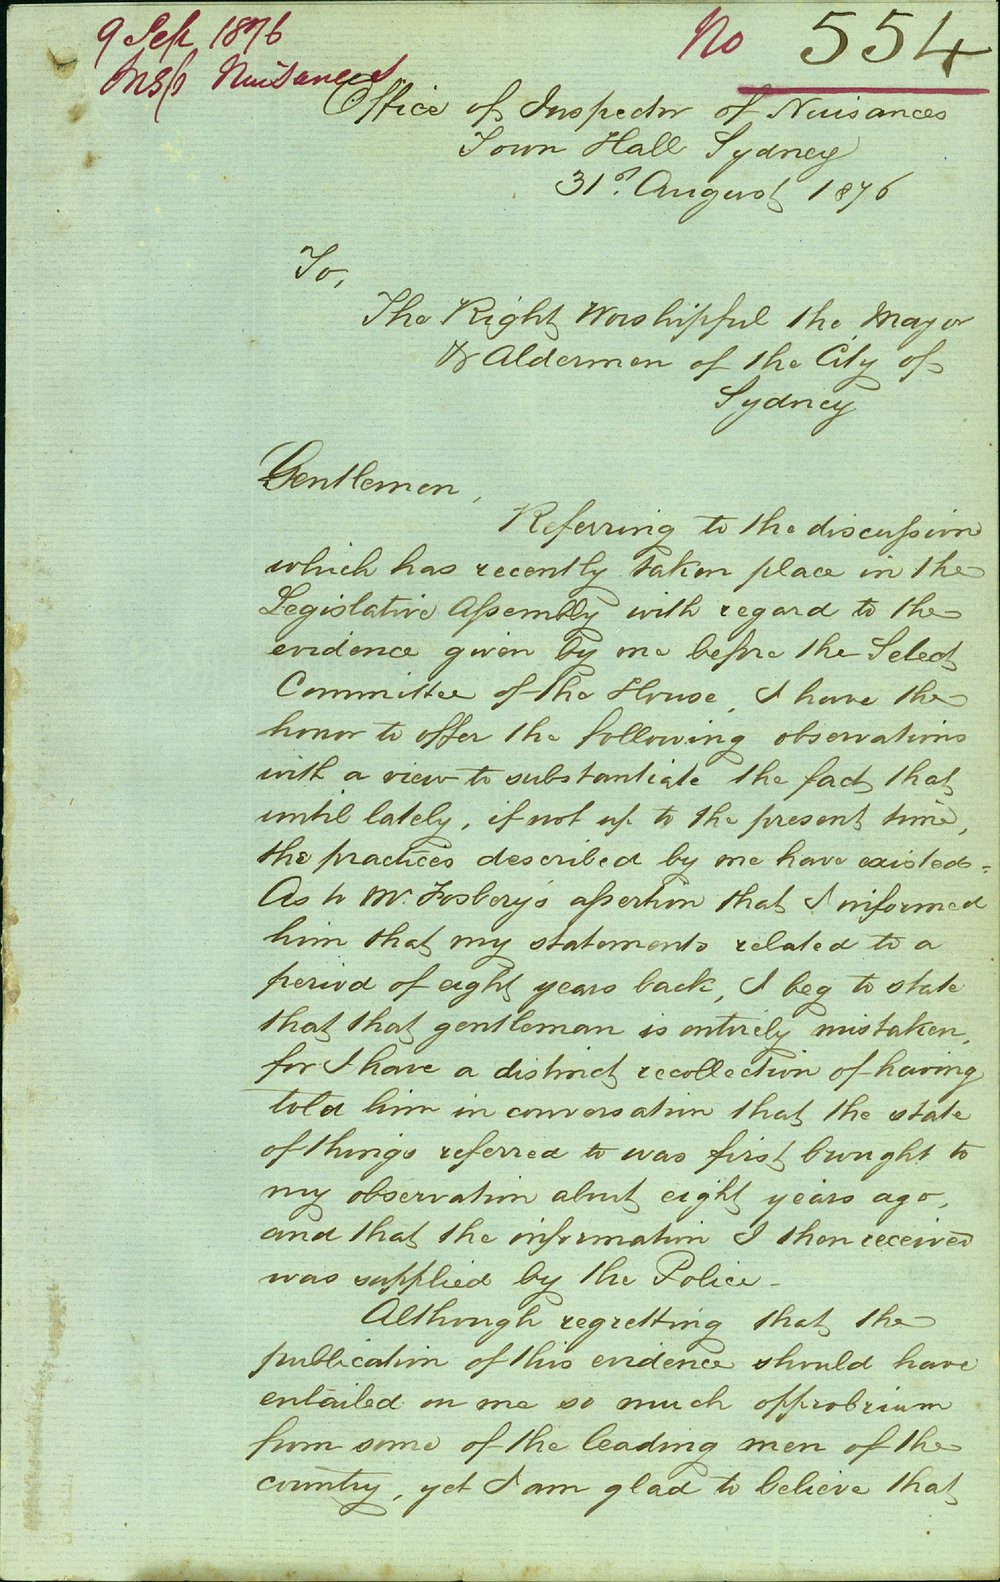 9 Sep 1876
Insp Nuisances
No 554
Office of Inspector of Nuisances
Town Hall Sydney
31st August 1876
To,
The Right Worshipful the Mayor
& Aldermen of the City of
Sydney
Gentlemen,
Referring to the discussion
which has recently taken place in the
Legislative Assembly with regard to the
evidence given by me before the Select
Committee of the House, I have the
honor to offer the following observations
with a view to substantiate the fact that
until lately, if not up to the present time,
the practices described by me have existed -
As to Mr. Fosbery's assertion that I informed
him that my statements related to a
period of eight years back, I beg to state
that that gentleman is entirely mistaken,
for I have a distinct recollection of having
told him in conversation that the state
of things referred to was first brought to
my observation about eight years ago,
and that the information I then received
was supplied by the Police -
Although regretting that the
publication of this evidence should have
entailed on me so much opprobrium
from some of the leading men of the
country, yet I am glad to believe that